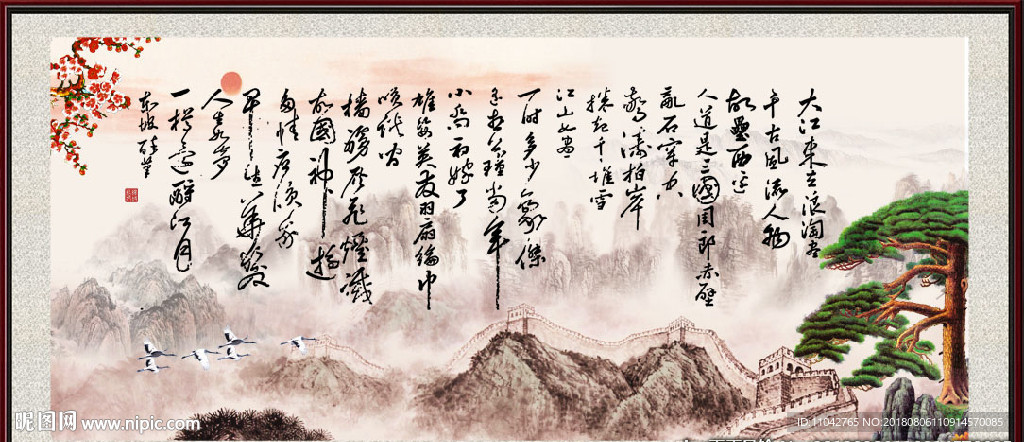 大江東去浪淘盡
千古風流人物
故壘西邊
人道是三國周郎赤壁
亂石穿空
驚濤拍岸
捲起千堆雪
江山如畫
一時多少豪傑
遙想公瑾當年
小喬初嫁了
雄姿英發羽扇綸巾
談笑間
檣櫓灰飛煙滅
故國神遊
多情應笑我
早生華髮
人生如夢
一樽還酹江月
昵图网 www.nipic.com
ID:11042765 NO:20180806110914570085